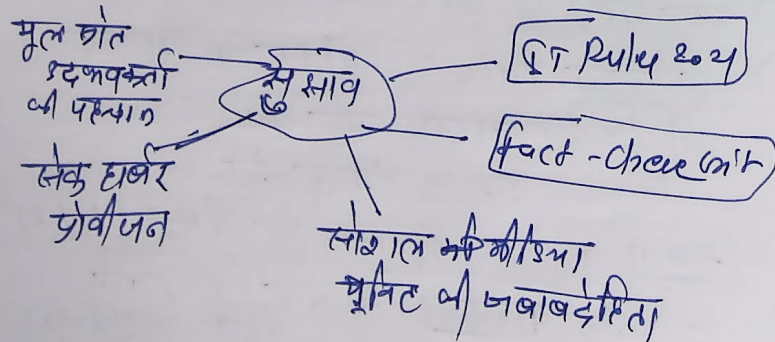 मूल स्रोत
उद्गमकर्ता
की पहचान
सुझाव
IT Rule 2021
fact-check unit
सेफ हार्बर
प्रोवीजन
सोशल मीडिया
यूनिट की जबाबदेहिता